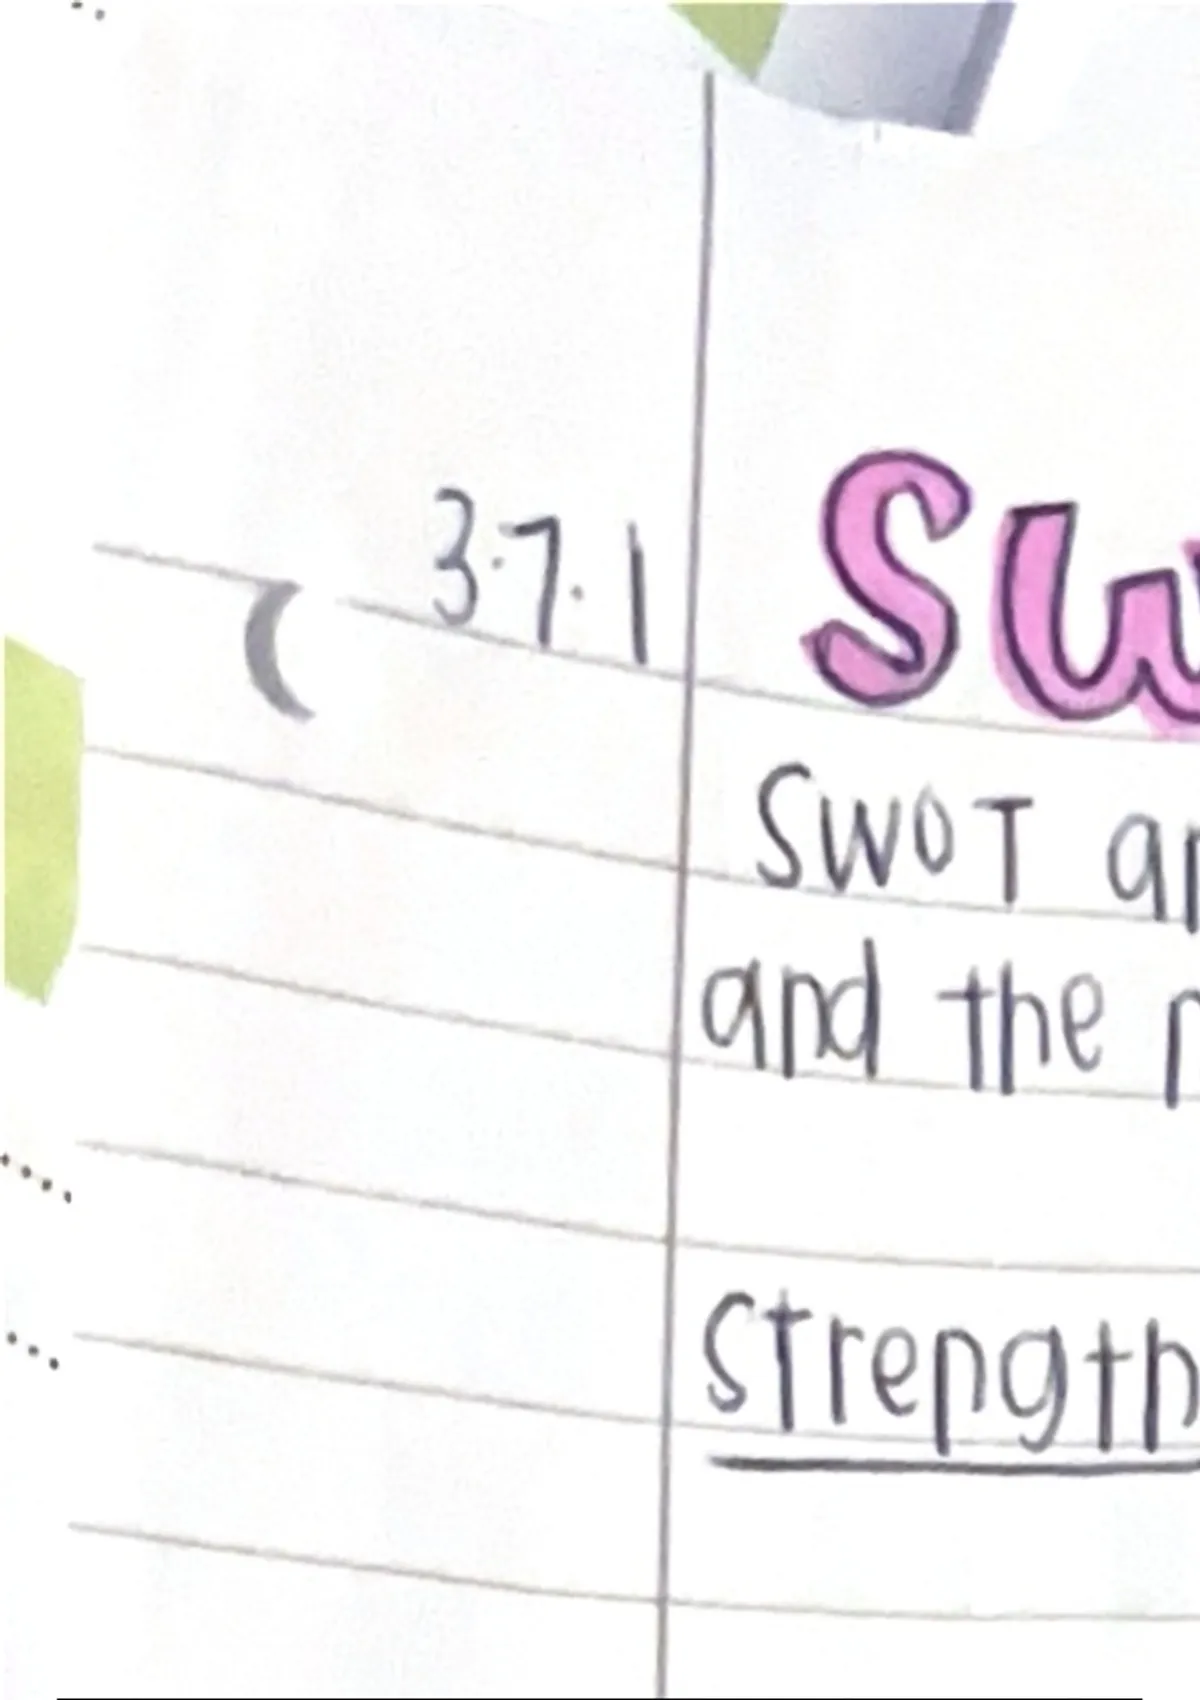 3.7.1 Sw
SWOT an
and the
Strength